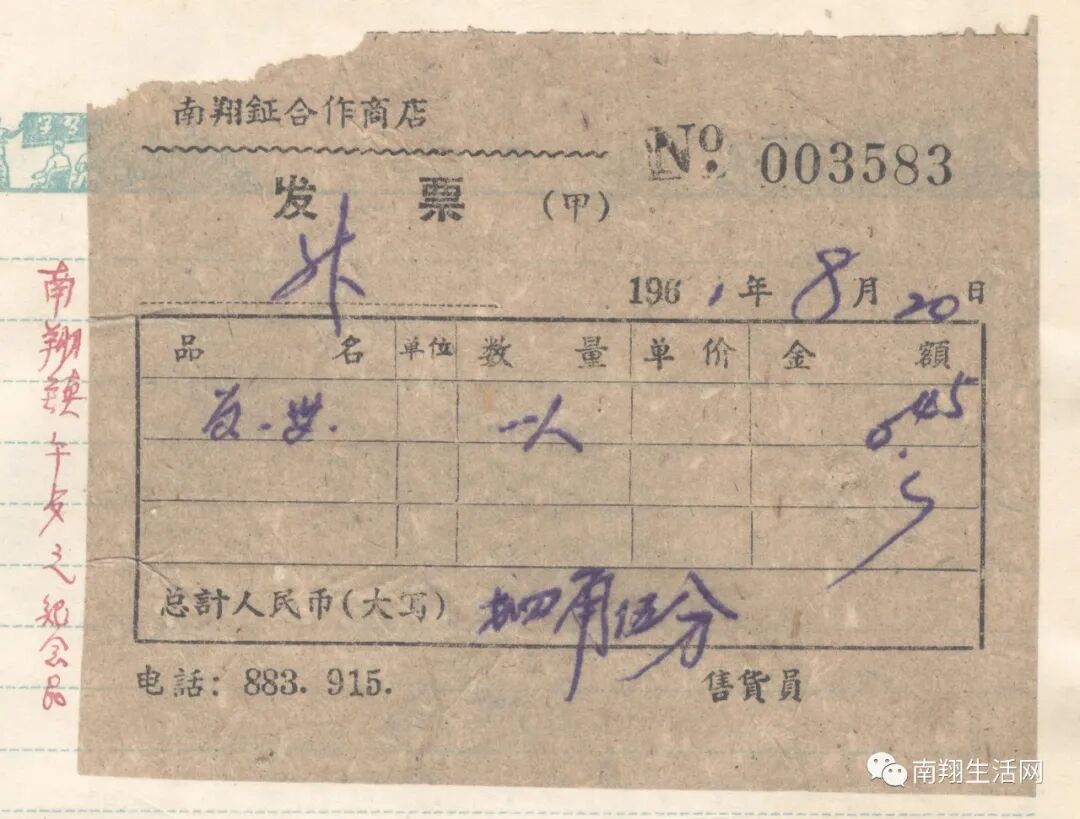 南翔鉦合作商店
No 003583
发票（甲）
1961年8月20日
品名 单位 数量 单价 金額
一人 0.45
总計人民币(大写) 四角伍分
电話：883. 915.
售貨員
南翔镇午友之紀念品
南翔生活网